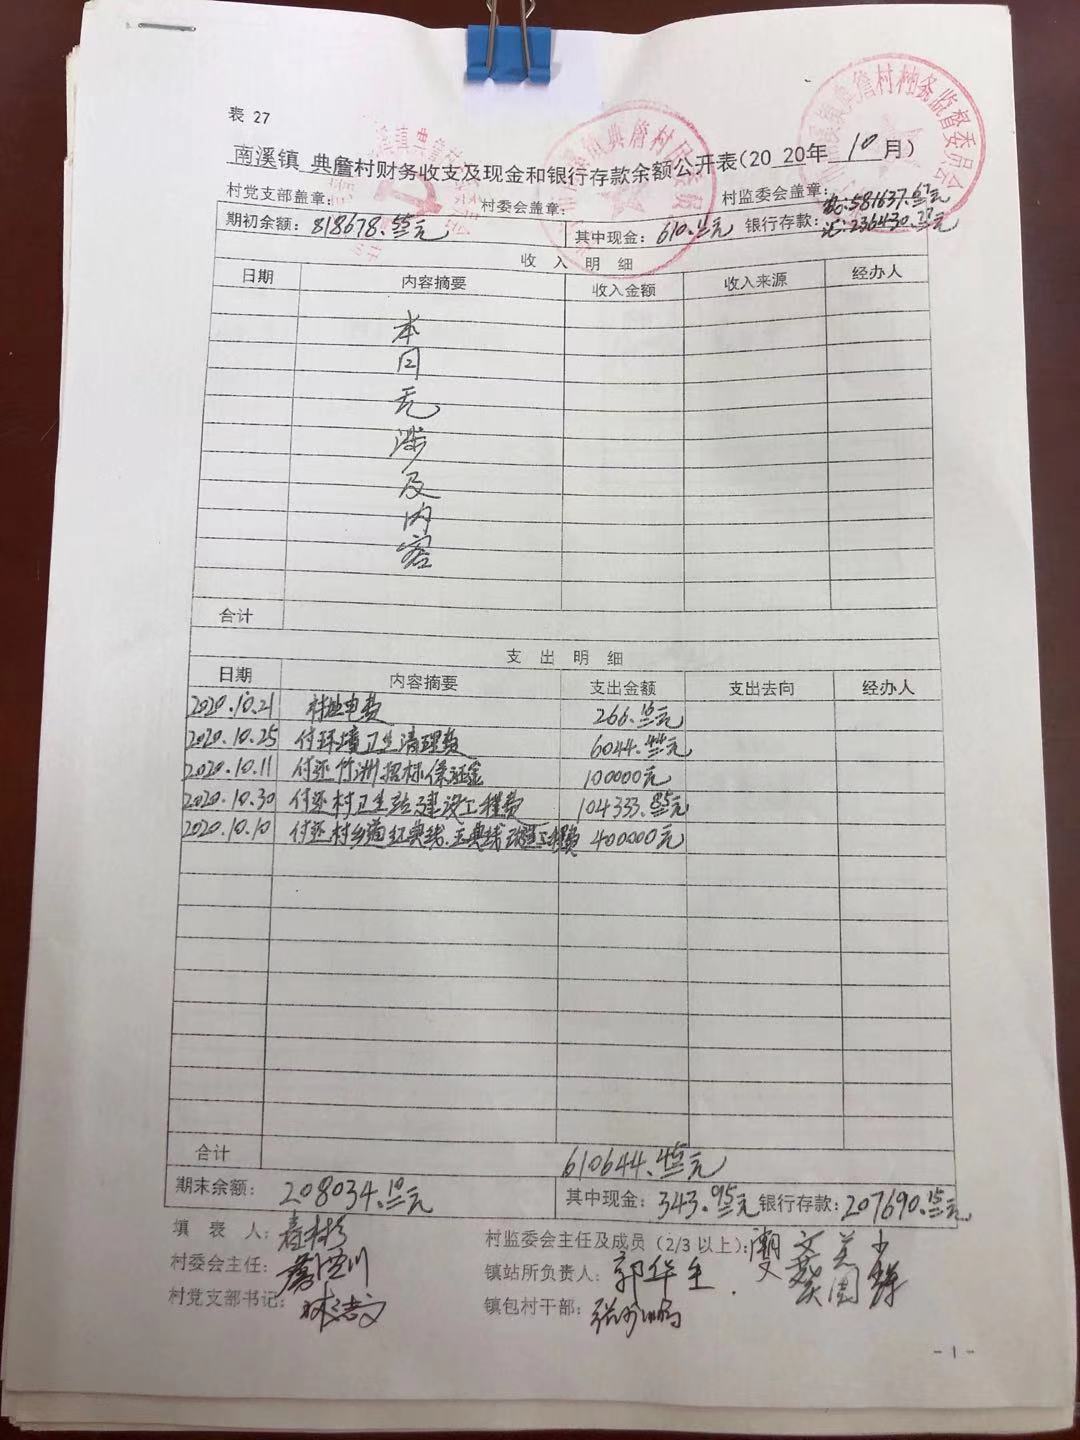 表 27
南溪镇 典詹村财务收支及现金和银行存款余额公开表(20 20年 10 月)
村党支部盖章: 村委会盖章: 村监委会盖章:
期初余额: 818678.55元 其中现金: 610.11元 银行存款: 581637.67元
236430.77元
收 入 明 细
日期 内容摘要 收入金额 收入来源 经办人
本
月
无
涉
及
内
容
合计
支 出 明 细
日期 内容摘要 支出金额 支出去向 经办人
2020.10.21 村址电费 266.16元
2020.10.25 付环境卫生清理费 6044.44元
2020.10.11 付还竹洲招标保证金 100000元
2020.10.30 付还村卫生站建设工程费 104333.85元
2020.10.10 付还村乡道红典线.玉典线改造工程费 400000元
合计 610644.45元
期末余额: 208034.10元 其中现金: 343.95元 银行存款: 207690.15元
填 表 人: 村监委会主任及成员(2/3以上):
村委会主任: 镇站所负责人: 郭华生
村党支部书记: 镇包村干部:
- 1 -